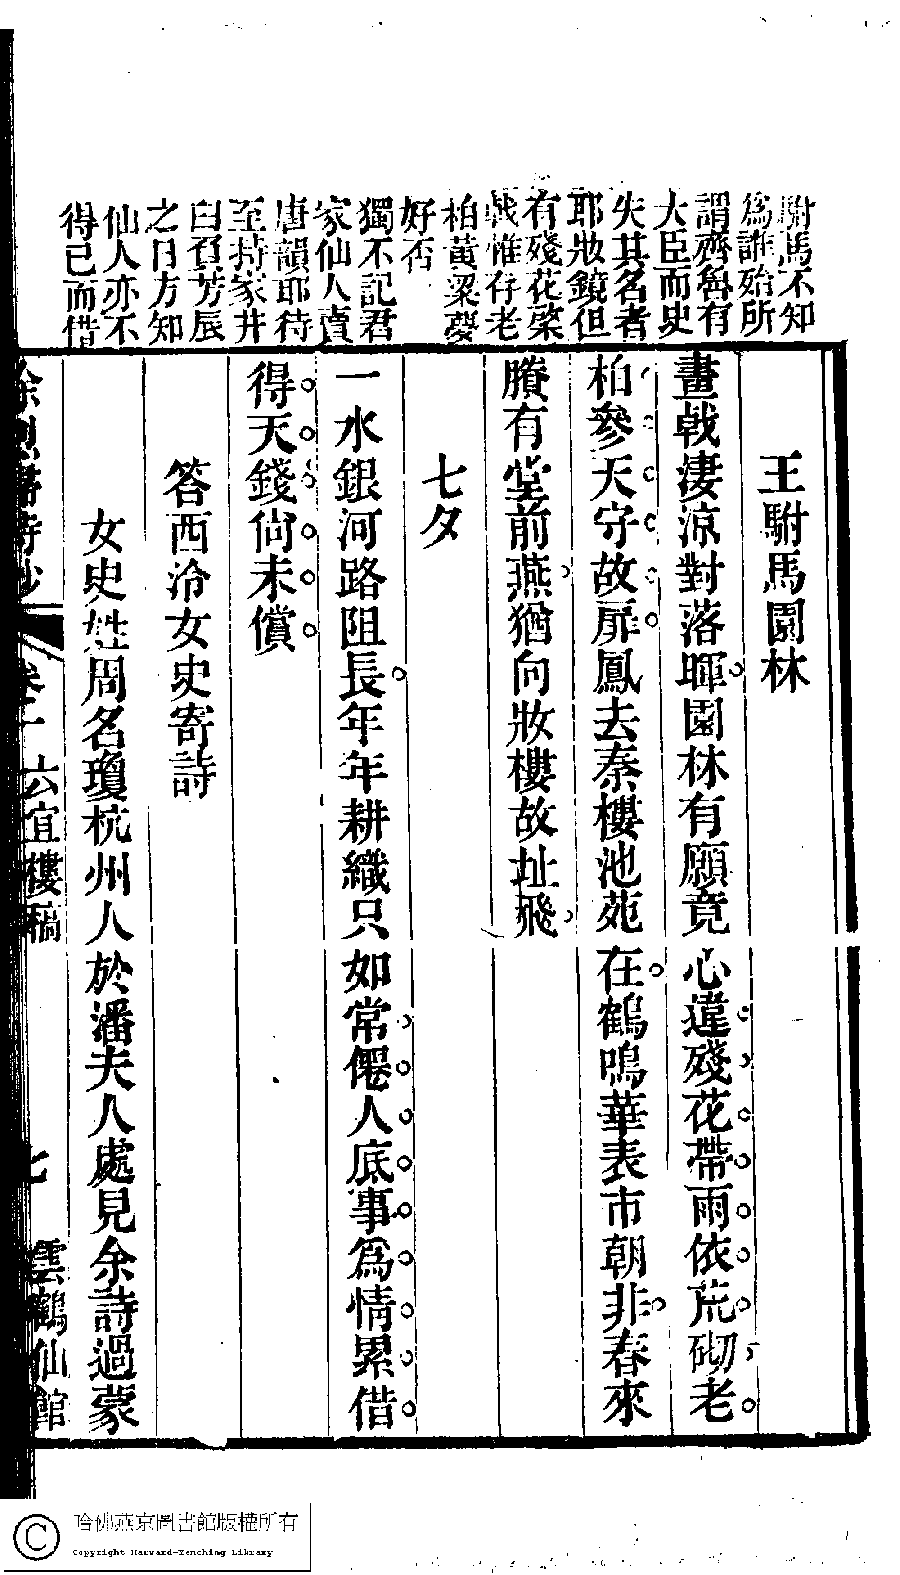 駙馬不知
為誰殆所
謂齊魯有
大臣而史
失其名者
耶妝鏡但
有殘花榮
戟惟存老
柏黃粱夢
好否
獨不記君
家仙人賣
唐韻耶待
至持家井
臼召芳辰
之日方知
仙人亦不
得已而借
王駙馬園林
畫戟淒涼對落暉園林有願竟心違殘花帶雨依荒砌老
柏參天守故扉鳳去秦樓池苑在鶴鳴華表市朝非春來
賸有堂前燕猶向妝樓故址飛
七夕
一水銀河路阻長年年耕織只如常僊人底事為情累借
得天錢尙未償
答西泠女史寄詩
女史姓周名瓊杭州人於潘夫人處見余詩過蒙
卷二 六宜樓稿 七 雲鶴仙館
哈佛燕京圖書館版權所有
Copyright Harvard-Yenching Library